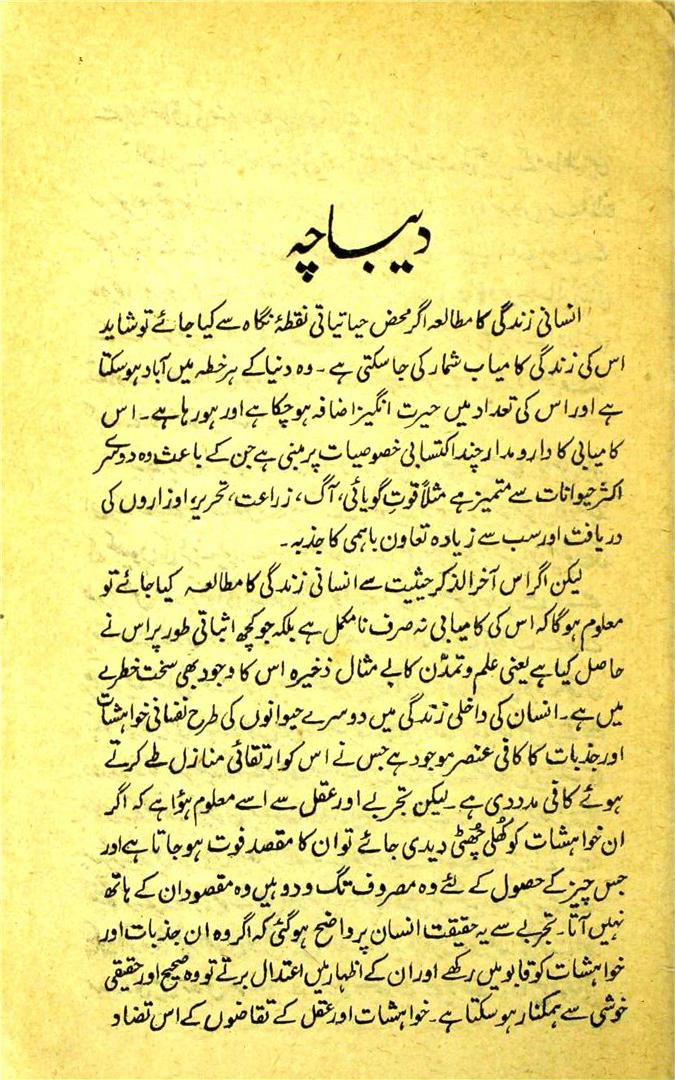 دیباچہ
انسانی زندگی کا مطالعہ اگر محض حیاتیاتی نقطۂ نگاہ سے کیا جائے تو شاید
اس کی زندگی کامیاب شمار کی جا سکتی ہے ۔ وہ دنیا کے ہر خطہ میں آباد ہو سکتا
ہے اور اس کی تعداد میں حیرت انگیز اضافہ ہو چکا ہے اور ہو رہا ہے۔ اس
کامیابی کا دارومدار چند اکتسابی خصوصیات پر مبنی ہے جن کے باعث وہ دوسرے
اکثر حیوانات سے متمیز ہے مثلاً قوتِ گویائی، آگ، زراعت، تحریر، اوزاروں کی
دریافت اور سب سے زیادہ تعاون باہمی کا جذبہ ۔
لیکن اگر اس آخرالذکر حیثیت سے انسانی زندگی کا مطالعہ کیا جائے تو
معلوم ہوگا کہ اس کی کامیابی نہ صرف نامکمل ہے بلکہ جو کچھ اثباتی طور پر اس نے
حاصل کیا ہے یعنی علم و تمدّن کا بے مثال ذخیرہ اس کا وجود بھی سخت خطرے
میں ہے۔ انسان کی داخلی زندگی میں دوسرے حیوانوں کی طرح نفسانی خواہشات
اور جذبات کا کافی عنصر موجود ہے جس نے اس کو ارتقائی منازل طے کرتے
ہوئے کافی مدد دی ہے ۔ لیکن تجربے اور عقل سے اسے معلوم ہؤا ہے کہ اگر
ان خواہشات کو کُھلی چُھٹی دیدی جائے تو ان کا مقصد فوت ہو جاتا ہے اور
جس چیز کے حصول کے لئے وہ مصروف تگ و دو ہیں وہ مقصود ان کے ہاتھ
نہیں آتا۔ تجربے سے یہ حقیقت انسان پر واضح ہو گئی کہ اگر وہ ان جذبات اور
خواہشات کو قابو میں رکھے اور ان کے اظہار میں اعتدال برتے تو وہ صحیح اور حقیقی
خوشی سے ہمکنار ہو سکتا ہے۔ خواہشات اور عقل کے تقاضوں کے اس تضاد